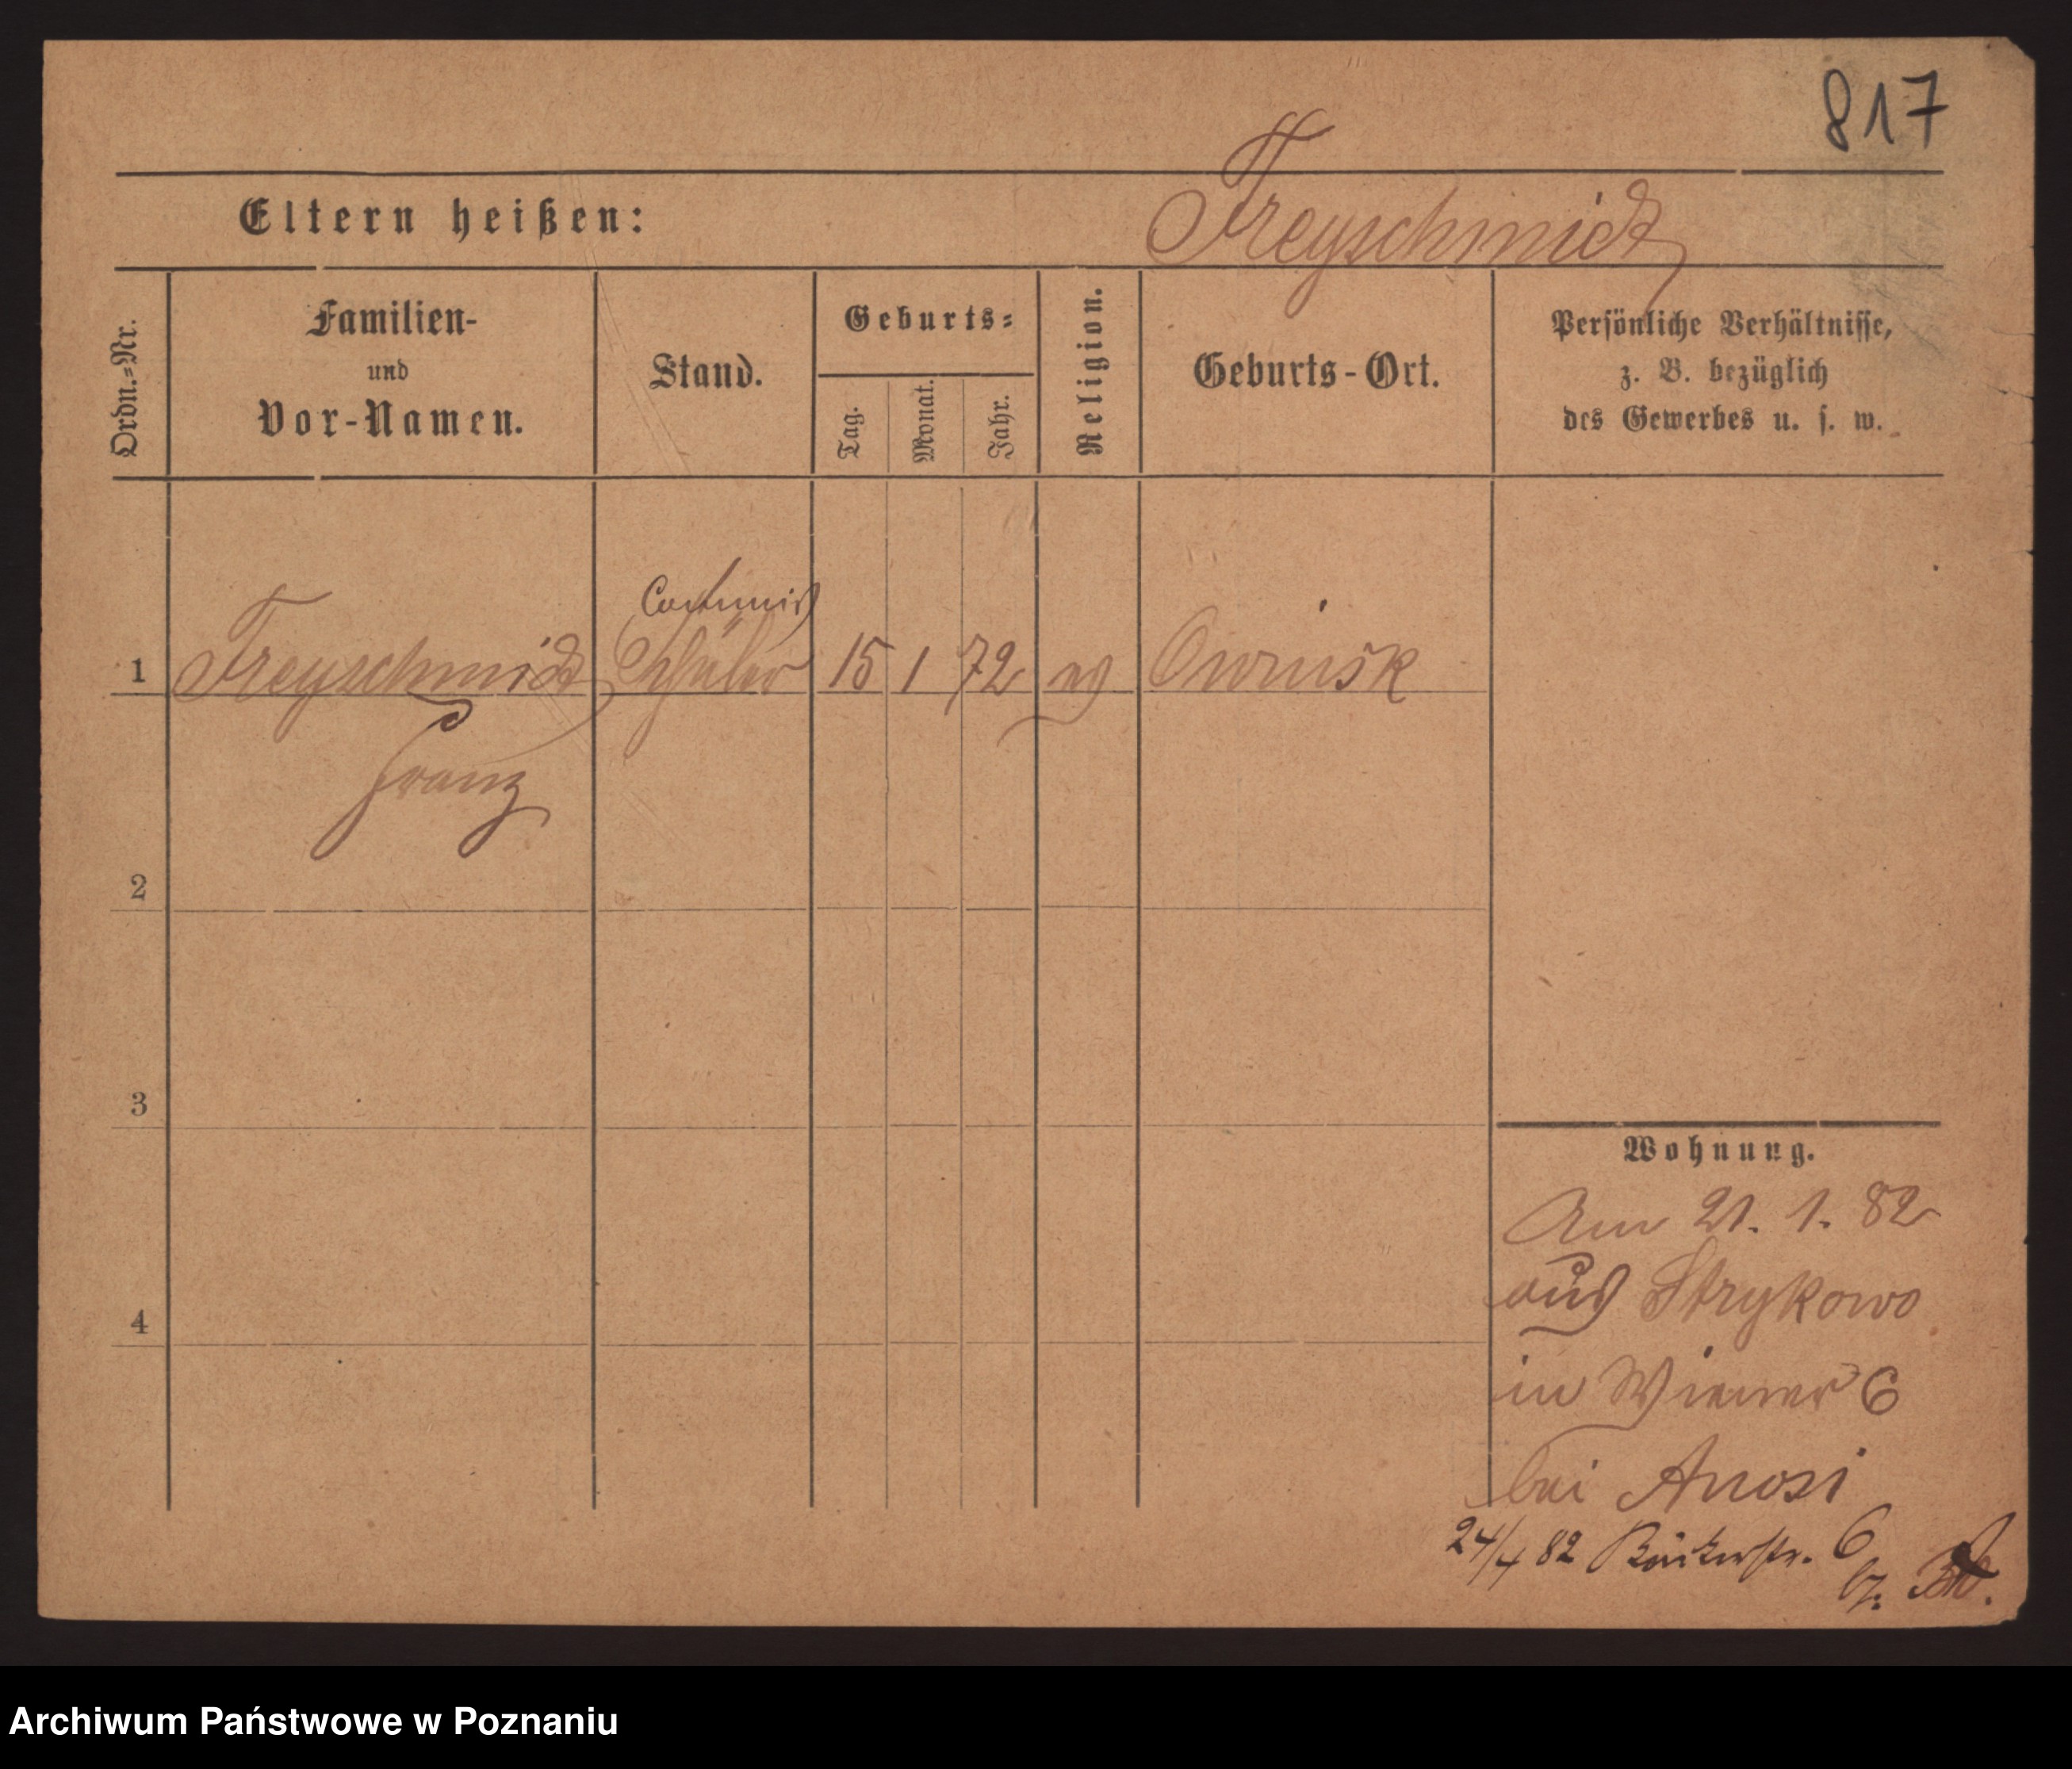 817
Eltern heißen: Freyschmidt
Ordn.=Nr.
Familien-
und
Vor-Namen.
Stand.
Geburts=
Tag.
Monat.
Jahr.
Religion.
Geburts-Ort.
Persönliche Verhältnisse,
z. B. bezüglich
des Gewerbes u. s. w.
1 Freyschmidt Schüler 15 1 72 ev Owinsk
Franz
2
3
4
Wohnung.
Am 21. 1. 82
aus Strykowo
in Wiener 6
bei
24/4 82 Bäckerstr. 6
Archiwum Państwowe w Poznaniu